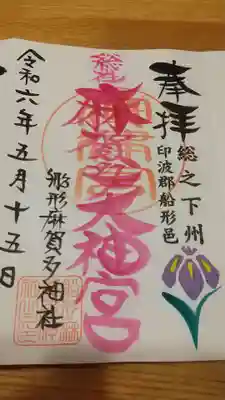 奉拝
総之下州
印波郡船形邑
総社
麻賀多大神宮
郷形麻賀多神社
令和六年五月十五日